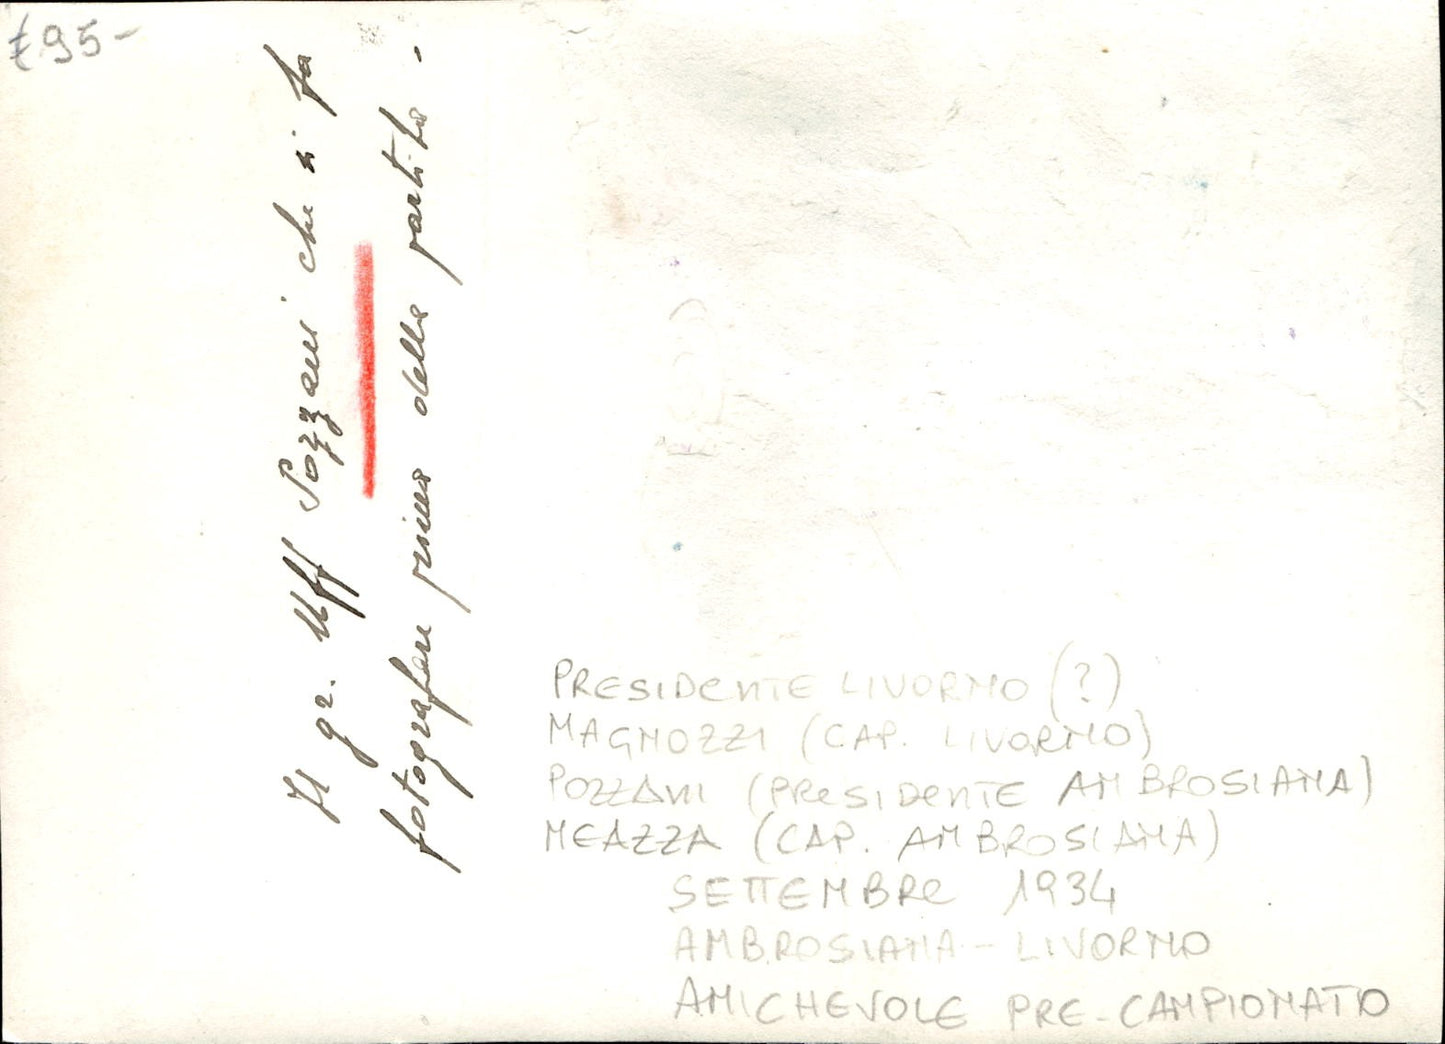 £95-
Il gr. Uff Pozzani che si fa
fotografare prima della partita -
PRESIDENTE LIVORNO (?)
MAGNOZZI (CAP. LIVORNO)
POZZANI (PRESIDENTE AMBROSIANA)
MEAZZA (CAP. AMBROSIANA)
SETTEMBRE 1934
AMBROSIANA - LIVORNO
AMICHEVOLE PRE-CAMPIONATO